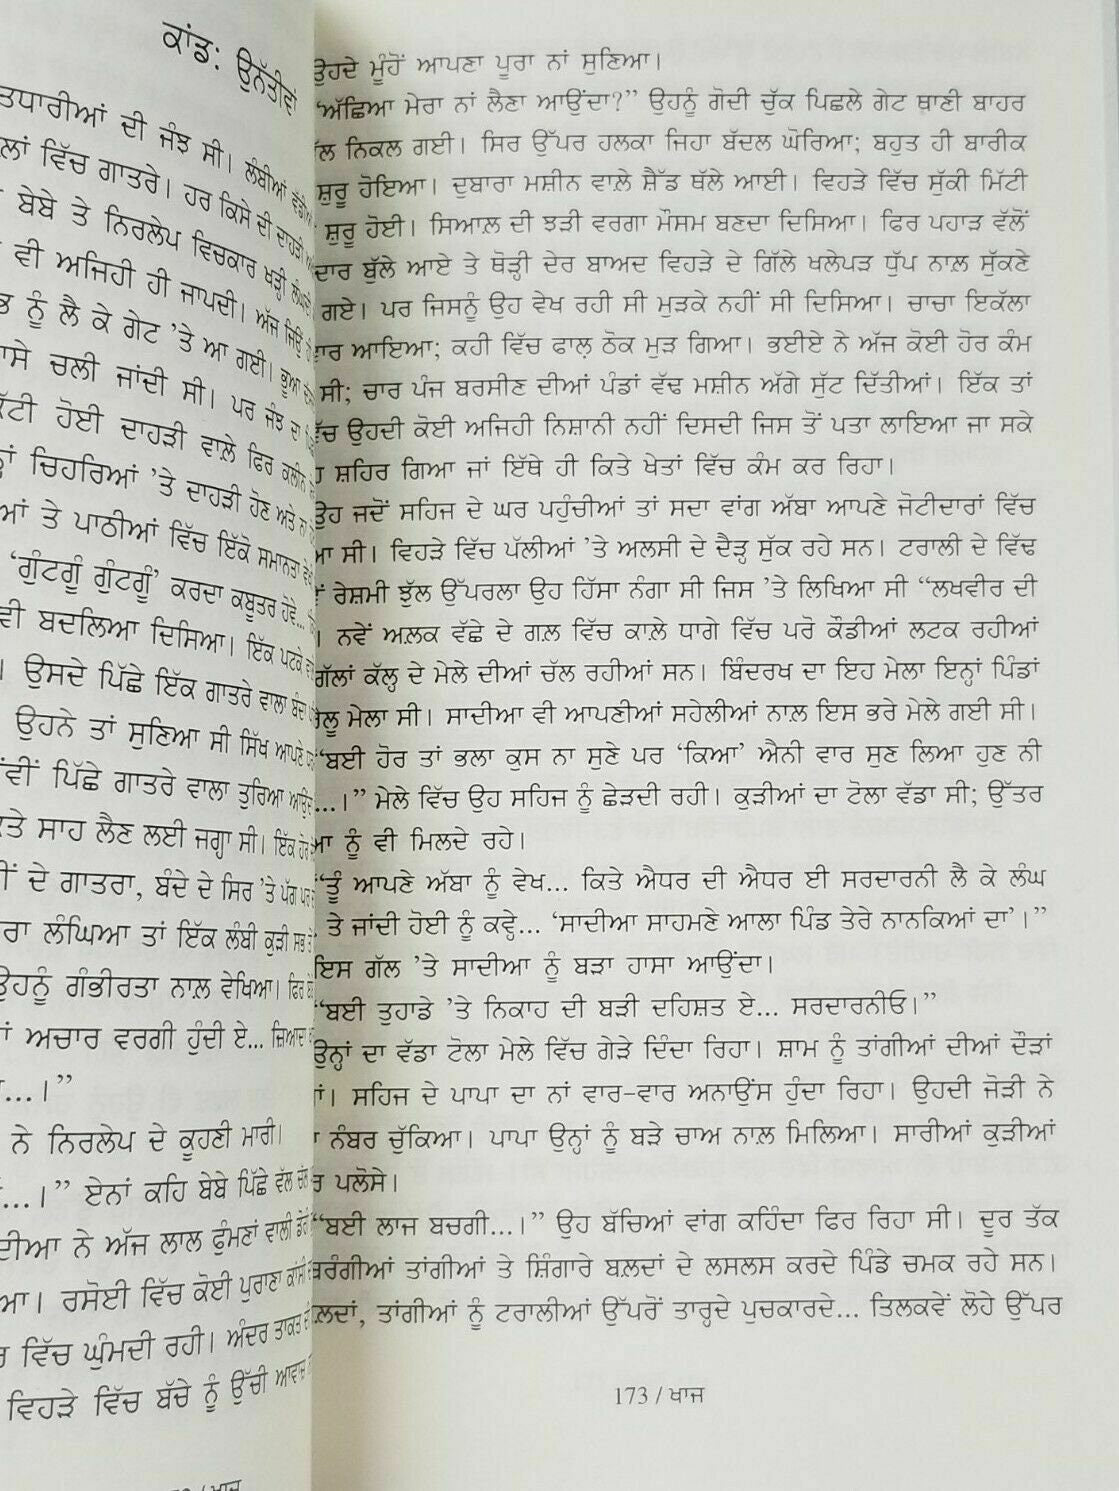 ਕਾਂਡ: ਉਨੱਤੀਵਾਂ
ਤਧਾਰੀਆਂ ਦੀ ਜੰਝ ਸੀ। ਲੰਬੀਆਂ
ਲਾਂ ਵਿੱਚ ਗਾਤਰੇ। ਹਰ ਕਿਸੇ ਦੀ ਦਾਹੜੀ
ਬੇਬੇ ਤੇ ਨਿਰਲੇਪ ਵਿਚਕਾਰ ਖੜ੍ਹੀ
ਵੀ ਅਜਿਹੀ ਹੀ ਜਾਪਦੀ। ਅੱਜ ਜਿਉਂ
ਨੂੰ ਲੈ ਕੇ ਗੇਟ ’ਤੇ ਆ ਗਈ। ਭੂਆ
ਾਸੇ ਚਲੀ ਜਾਂਦੀ ਸੀ। ਪਰ ਜੰਝ ਦਾ
ੱਟੀ ਹੋਈ ਦਾਹੜੀ ਵਾਲ਼ੇ ਫਿਰ ਕਲੀਨ
ਚਿਹਰਿਆਂ ’ਤੇ ਦਾਹੜੀ ਹੋਣ ਅਤੇ ਨਾ
ਆਂ ਤੇ ਪਾਠੀਆਂ ਵਿੱਚ ਇੱਕੋ ਸਮਾਨਤਾ
‘ਗੁੰਟਗੂੰ ਗੁੰਟਗੂੰ’ ਕਰਦਾ ਕਬੂਤਰ ਹੋਵੇ...
ਵੀ ਬਦਲਿਆ ਦਿਸਿਆ। ਇੱਕ ਪਟਕੇ
। ਉਸਦੇ ਪਿੱਛੇ ਇੱਕ ਗਾਤਰੇ ਵਾਲਾ ਬੰਦਾ
ਉਹਨੇ ਤਾਂ ਸੁਣਿਆ ਸੀ ਸਿੱਖ ਆਪਣੇ
ਪਿੱਛੇ ਗਾਤਰੇ ਵਾਲਾ ਤੁਰਿਆ
ਤੇ ਸਾਹ ਲੈਣ ਲਈ ਜਗ੍ਹਾ ਸੀ। ਇੱਕ ਹੋਰ
ਦੇ ਗਾਤਰਾ, ਬੰਦੇ ਦੇ ਸਿਰ ’ਤੇ ਪੱਗ ਪਰ
ਰਾ ਲੰਘਿਆ ਤਾਂ ਇੱਕ ਲੰਬੀ ਕੁੜੀ ਸਭ ਤੋਂ
ਉਹਨੂੰ ਗੰਭੀਰਤਾ ਨਾਲ਼ ਵੇਖਿਆ। ਫਿਰ
ਅਚਾਰ ਵਰਗੀ ਹੁੰਦੀ ਏ... ਜ਼ਿਆਦਾ
...।”
ਨੇ ਨਿਰਲੇਪ ਦੇ ਕੂਹਣੀ ਮਾਰੀ।
...।” ਏਨਾਂ ਕਹਿ ਬੇਬੇ ਪਿੱਛੇ ਵੱਲ
ਦੀਆ ਨੇ ਅੱਜ ਲਾਲ ਫੁੰਮਣਾਂ ਵਾਲੀ
ਆ। ਰਸੋਈ ਵਿੱਚ ਕੋਈ ਪੁਰਾਣਾ ਕਾਂਸੀ
ਵਿੱਚ ਘੁੰਮਦੀ ਰਹੀ। ਅੰਦਰ ਤਾਕਤ
ਵਿਹੜੇ ਵਿੱਚ ਬੱਚੇ ਨੂੰ ਉੱਚੀ ਆਵਾਜ਼
/ ਖਾਜ
ਉਹਦੇ ਮੂੰਹੋਂ ਆਪਣਾ ਪੂਰਾ ਨਾਂ ਸੁਣਿਆ।
“ਅੱਛਿਆ ਮੇਰਾ ਨਾਂ ਲੈਣਾ ਆਉਂਦਾ?” ਉਹਨੂੰ ਗੋਦੀ ਚੁੱਕ ਪਿਛਲੇ ਗੇਟ ਥਾਣੀ ਬਾਹਰ
ੱਲ ਨਿਕਲ ਗਈ। ਸਿਰ ਉੱਪਰ ਹਲਕਾ ਜਿਹਾ ਬੱਦਲ ਘੋਰਿਆ; ਬਹੁਤ ਹੀ ਬਾਰੀਕ
ਸ਼ੁਰੂ ਹੋਇਆ। ਦੁਬਾਰਾ ਮਸ਼ੀਨ ਵਾਲ਼ੇ ਸ਼ੈੱਡ ਥੱਲੇ ਆਈ। ਵਿਹੜੇ ਵਿੱਚ ਸੁੱਕੀ ਮਿੱਟੀ
ਸ਼ੁਰੂ ਹੋਈ। ਸਿਆਲ਼ ਦੀ ਝੜੀ ਵਰਗਾ ਮੌਸਮ ਬਣਦਾ ਦਿਸਿਆ। ਫਿਰ ਪਹਾੜ ਵੱਲੋਂ
ਦਾਰ ਬੁੱਲੇ ਆਏ ਤੇ ਥੋੜ੍ਹੀ ਦੇਰ ਬਾਅਦ ਵਿਹੜੇ ਦੇ ਗਿੱਲੇ ਖਲੇਪੜ ਧੁੱਪ ਨਾਲ਼ ਸੁੱਕਣੇ
ਗਏ। ਪਰ ਜਿਸਨੂੰ ਉਹ ਵੇਖ ਰਹੀ ਸੀ ਮੁੜਕੇ ਨਹੀਂ ਸੀ ਦਿਸਿਆ। ਚਾਚਾ ਇਕੱਲਾ
ਵਾਰ ਆਇਆ; ਕਹੀ ਵਿੱਚ ਫਾਲ਼ ਠੋਕ ਮੁੜ ਗਿਆ। ਭਈਏ ਨੇ ਅੱਜ ਕੋਈ ਹੋਰ ਕੰਮ
ਸੀ; ਚਾਰ ਪੰਜ ਬਰਸੀਣ ਦੀਆਂ ਪੰਡਾਂ ਵੱਢ ਮਸ਼ੀਨ ਅੱਗੇ ਸੁੱਟ ਦਿੱਤੀਆਂ। ਇੱਕ ਤਾਂ
ਵਿੱਚ ਉਹਦੀ ਕੋਈ ਅਜਿਹੀ ਨਿਸ਼ਾਨੀ ਨਹੀਂ ਦਿਸਦੀ ਜਿਸ ਤੋਂ ਪਤਾ ਲਾਇਆ ਜਾ ਸਕੇ
ਸ਼ਹਿਰ ਗਿਆ ਜਾਂ ਇੱਥੇ ਹੀ ਕਿਤੇ ਖੇਤਾਂ ਵਿੱਚ ਕੰਮ ਕਰ ਰਿਹਾ।
ਉਹ ਜਦੋਂ ਸਹਿਜ ਦੇ ਘਰ ਪਹੁੰਚੀਆਂ ਤਾਂ ਸਦਾ ਵਾਂਗ ਅੱਬਾ ਆਪਣੇ ਜੋਟੀਦਾਰਾਂ ਵਿੱਚ
ਸੀ। ਵਿਹੜੇ ਵਿੱਚ ਪੱਲੀਆਂ ’ਤੇ ਅਲਸੀ ਦੇ ਦੈੜ੍ਹ ਸੁੱਕ ਰਹੇ ਸਨ। ਟਰਾਲੀ ਦੇ ਵਿੱਢ
ਰੇਸ਼ਮੀ ਝੁੱਲ ਉੱਪਰਲਾ ਉਹ ਹਿੱਸਾ ਨੰਗਾ ਸੀ ਜਿਸ ’ਤੇ ਲਿਖਿਆ ਸੀ “ਲਖਵੀਰ ਦੀ
। ਨਵੇਂ ਅਲ਼ਕ ਵੱਛੇ ਦੇ ਗਲ਼ ਵਿੱਚ ਕਾਲ਼ੇ ਧਾਗੇ ਵਿੱਚ ਪਰੋ ਕੌਡੀਆਂ ਲਟਕ ਰਹੀਆਂ
ਗੱਲਾਂ ਕੱਲ੍ਹ ਦੇ ਮੇਲੇ ਦੀਆਂ ਚੱਲ ਰਹੀਆਂ ਸਨ। ਬਿੰਦਰਖ ਦਾ ਇਹ ਮੇਲਾ ਇਨ੍ਹਾਂ ਪਿੰਡਾਂ
ੇਲੂ ਮੇਲਾ ਸੀ। ਸਾਦੀਆ ਵੀ ਆਪਣੀਆਂ ਸਹੇਲੀਆਂ ਨਾਲ਼ ਇਸ ਭਰੇ ਮੇਲੇ ਗਈ ਸੀ।
“ਬਈ ਹੋਰ ਤਾਂ ਭਲਾ ਕੁਸ ਨਾ ਸੁਣੇ ਪਰ ‘ਕਿਆ’ ਐਨੀ ਵਾਰ ਸੁਣ ਲਿਆ ਹੁਣ ਨੀ
...।” ਮੇਲੇ ਵਿੱਚ ਉਹ ਸਹਿਜ ਨੂੰ ਛੇੜਦੀ ਰਹੀ। ਕੁੜੀਆਂ ਦਾ ਟੋਲਾ ਵੱਡਾ ਸੀ; ਉੱਤਰ
ਆ ਨੂੰ ਵੀ ਮਿਲਦੇ ਰਹੇ।
“ਤੂੰ ਆਪਣੇ ਅੱਬਾ ਨੂੰ ਵੇਖ... ਕਿਤੇ ਐਧਰ ਦੀ ਐਧਰ ਈ ਸਰਦਾਰਨੀ ਲੈ ਕੇ ਲੰਘ
ਤੇ ਜਾਂਦੀ ਹੋਈ ਨੂੰ ਕਵ੍ਹੇ... ‘ਸਾਦੀਆ ਸਾਹਮਣੇ ਆਲਾ ਪਿੰਡ ਤੇਰੇ ਨਾਨਕਿਆਂ ਦਾ’।”
ਇਸ ਗੱਲ ’ਤੇ ਸਾਦੀਆ ਨੂੰ ਬੜਾ ਹਾਸਾ ਆਉਂਦਾ।
“ਬਈ ਤੁਹਾਡੇ ’ਤੇ ਨਿਕਾਹ ਦੀ ਬੜੀ ਦਹਿਸ਼ਤ ਏ... ਸਰਦਾਰਨੀਓ।”
ਉਨ੍ਹਾਂ ਦਾ ਵੱਡਾ ਟੋਲਾ ਮੇਲੇ ਵਿੱਚ ਗੇੜੇ ਦਿੰਦਾ ਰਿਹਾ। ਸ਼ਾਮ ਨੂੰ ਤਾਂਗੀਆਂ ਦੀਆਂ ਦੌੜਾਂ
। ਸਹਿਜ ਦੇ ਪਾਪਾ ਦਾ ਨਾਂ ਵਾਰ-ਵਾਰ ਅਨਾਉਂਸ ਹੁੰਦਾ ਰਿਹਾ। ਉਹਦੀ ਜੋੜੀ ਨੇ
ਨੰਬਰ ਚੁੱਕਿਆ। ਪਾਪਾ ਉਨ੍ਹਾਂ ਨੂੰ ਬੜੇ ਚਾਅ ਨਾਲ਼ ਮਿਲਿਆ। ਸਾਰੀਆਂ ਕੁੜੀਆਂ
ਰ ਪਲੋਸੇ।
“ਬਈ ਲਾਜ ਬਚਗੀ...।” ਉਹ ਬੱਚਿਆਂ ਵਾਂਗ ਕਹਿੰਦਾ ਫਿਰ ਰਿਹਾ ਸੀ। ਦੂਰ ਤੱਕ
ਬਰੰਗੀਆਂ ਤਾਂਗੀਆਂ ਤੇ ਸ਼ਿੰਗਾਰੇ ਬਲ਼ਦਾਂ ਦੇ ਲਸਲਸ ਕਰਦੇ ਪਿੰਡੇ ਚਮਕ ਰਹੇ ਸਨ।
ਲ਼ਦਾਂ, ਤਾਂਗੀਆਂ ਨੂੰ ਟਰਾਲੀਆਂ ਉੱਪਰੋਂ ਤਾਰ੍ਹਦੇ ਪੁਚਕਾਰਦੇ... ਤਿਲਕਵੇਂ ਲੋਹੇ ਉੱਪਰ
173 / ਖਾਜ